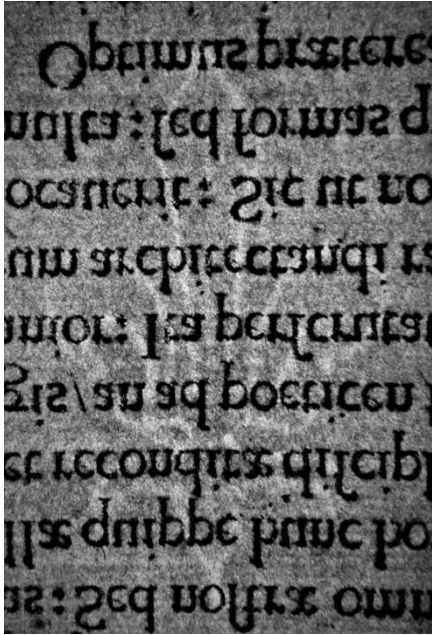 as: Sed noſtræ omn
llæ quippe hunc ho
et reconditæ diſcipl
gis/an ad poeticen
antior: Ita perſcrutat
um architectandi ra
ocauerit: Sic ut no
multa: ſed formas q
Optimus præterea